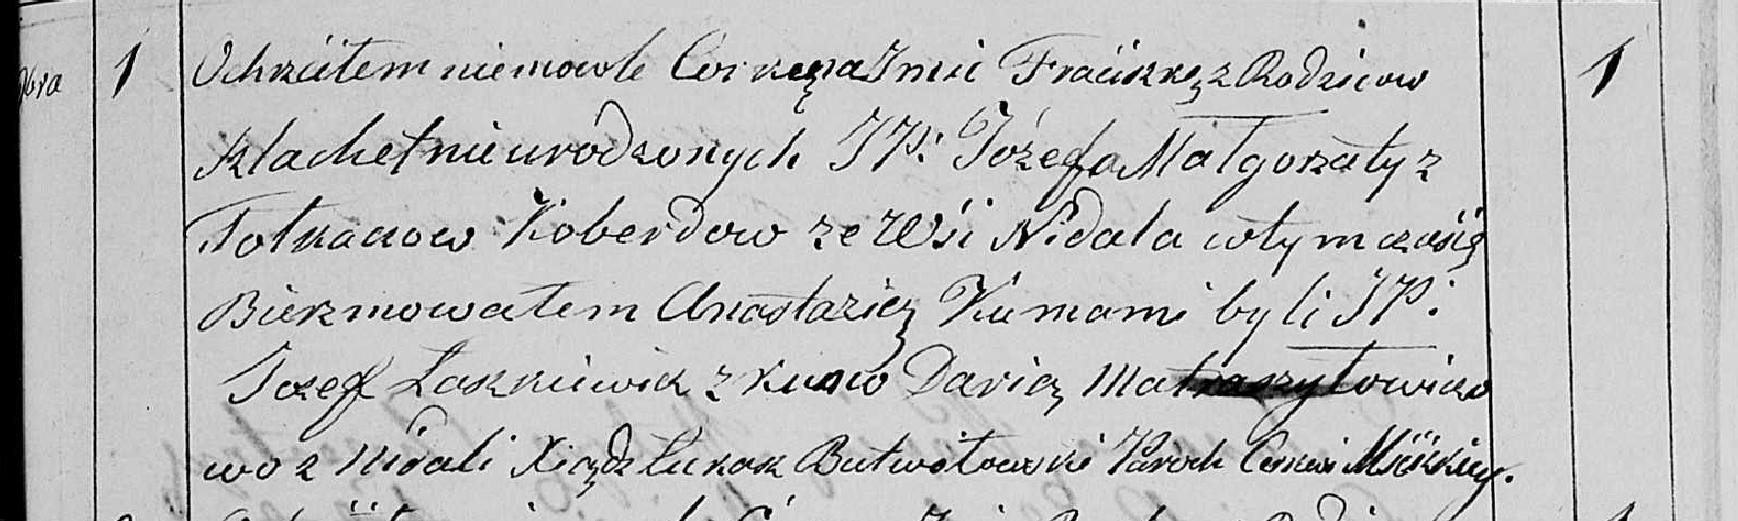 bra 1 Ochrzciłem niemowle Corkę na Imie Fraciszkę z Rodzicow 1
szlachetnie urodzonych JP: Józefa Małgorzaty z
Tołkaczow Koberdow ze Wsi Nidala w tym czasie
Bierzmowałem Anastazię Kumami byli JP:
Jozef Laszkiewicz z Darię
wo z Nidali Xiądz Łukasz Butwiłowski Paroch Cerkwi